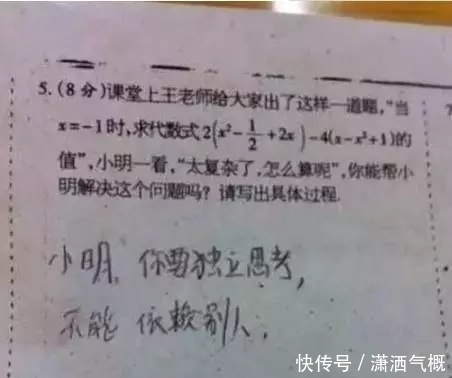 5.(8分)课堂上王老师给大家出了这样一道题,“当
x=-1时,求代数式2(x²-1/2+2x)-4(x-x²+1)的
值”,小明一看,“太复杂了,怎么算呢”,你能帮小
明解决这个问题吗?请写出具体过程.
小明,你要独立思考,
不能依赖别人.
快传号/潇洒气概